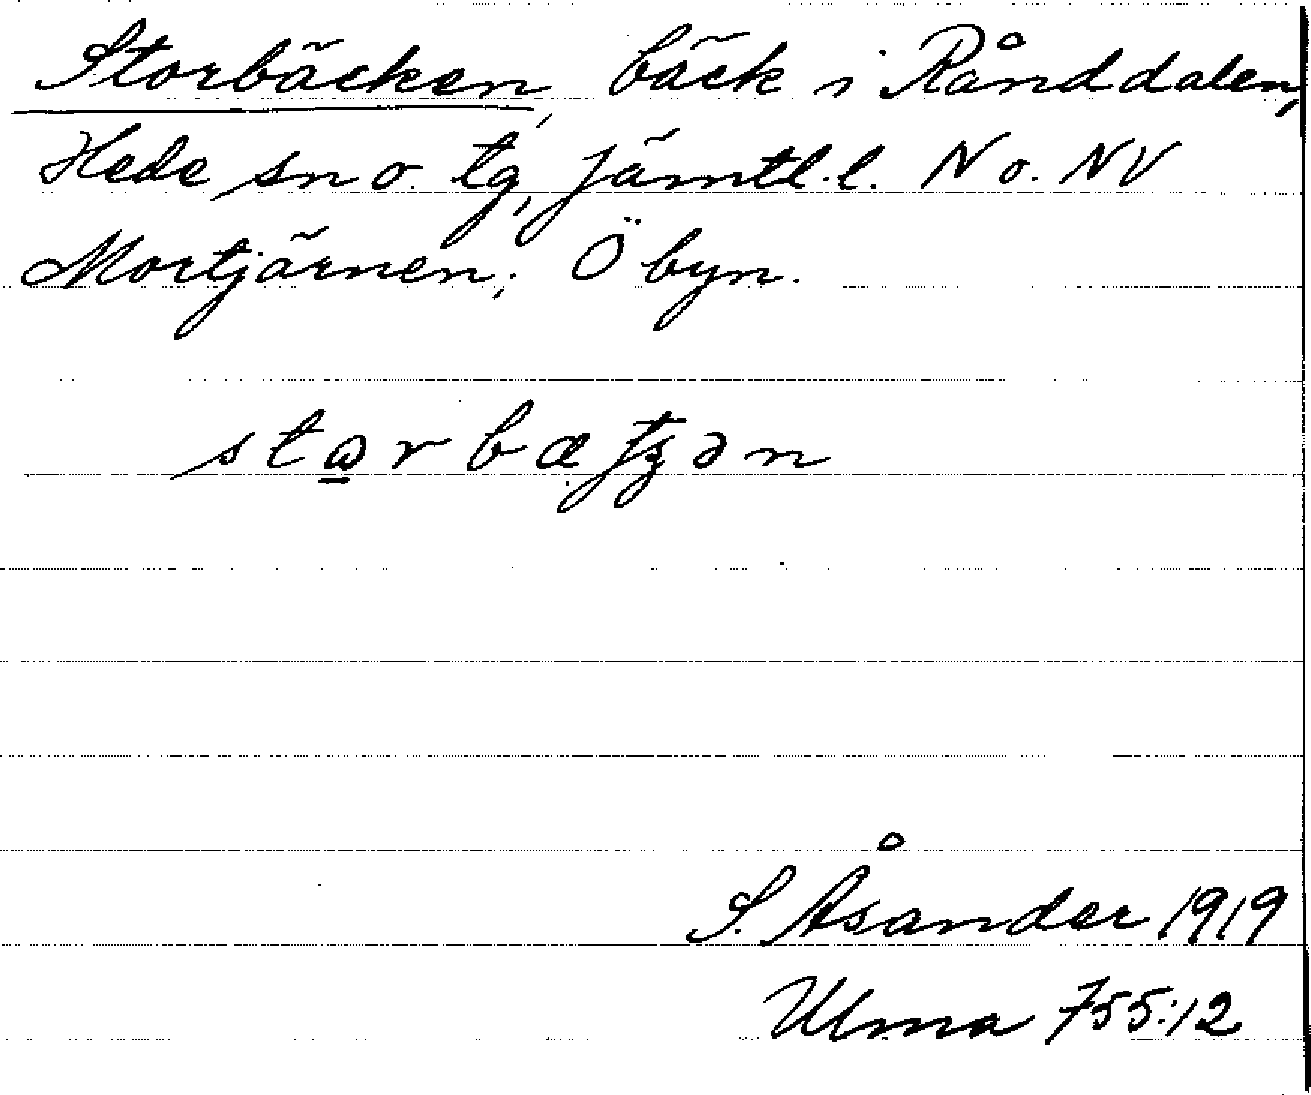 Storbäcken, bäck i Rånddalen,
Hede sn o. tg, Jämtl. l. N o. NV
Mortjärnen; Ö byn.
S. Åsander 1919
Ulma 755:12